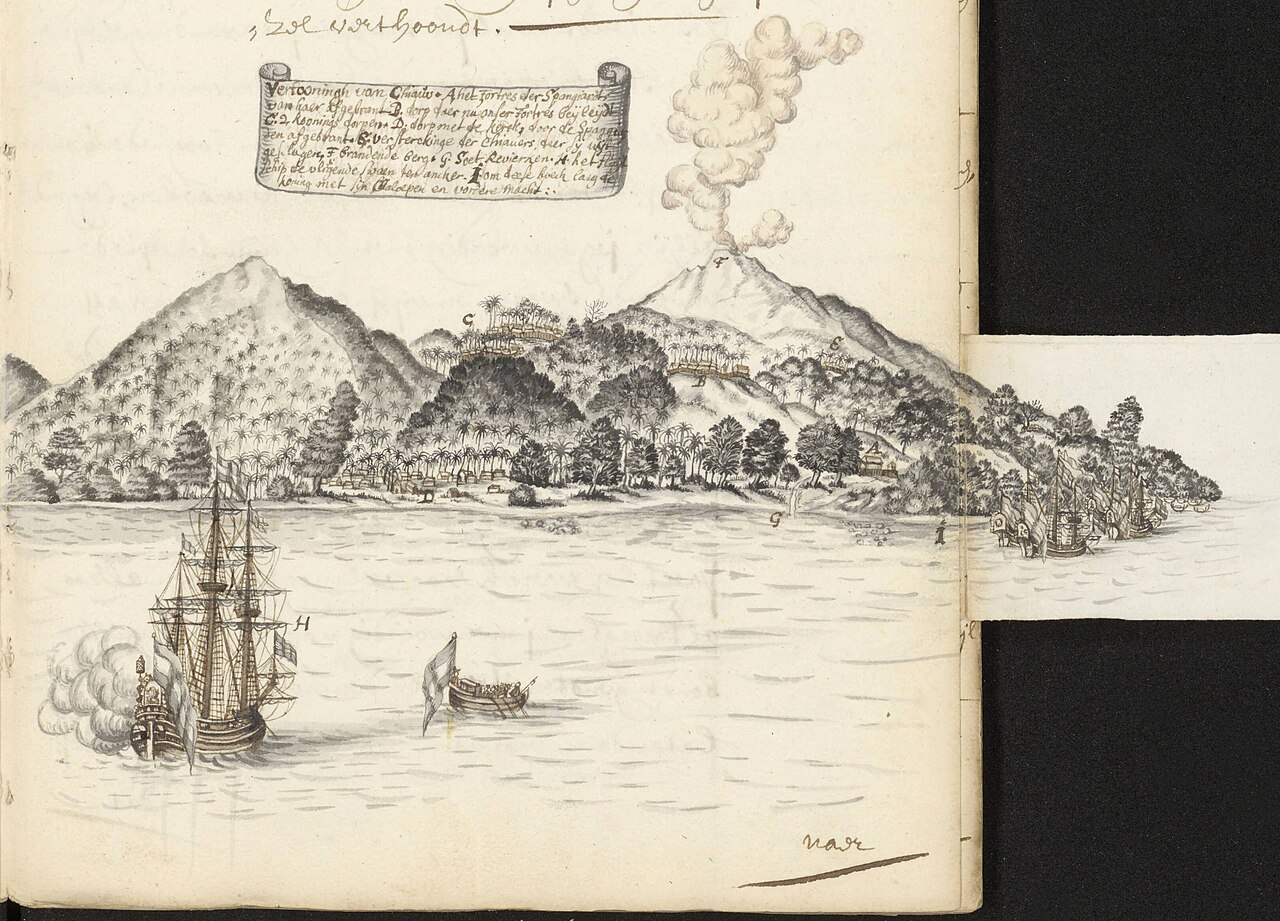 zel verthoondt.
Vertooningh van Chiauw. A het fortres der Spangiaerts,
van haer afgebrant. B. dorp daer nu onser fortres beij leijdt
C. 2 konings dorpen. D. dorp met de kerck, door de Spangi-
en afgebrant. E. versterckinge der Chiauers, daer sij uijt
geslagen, F. brandende berg. G. Soet Revierken. H. het
schip de vligende swaen ten ancker. I om dese hoeck laeg de
koning met sijn Chaloepen en vordere macht:.
F
C
E
B
D
G
I
H
naer